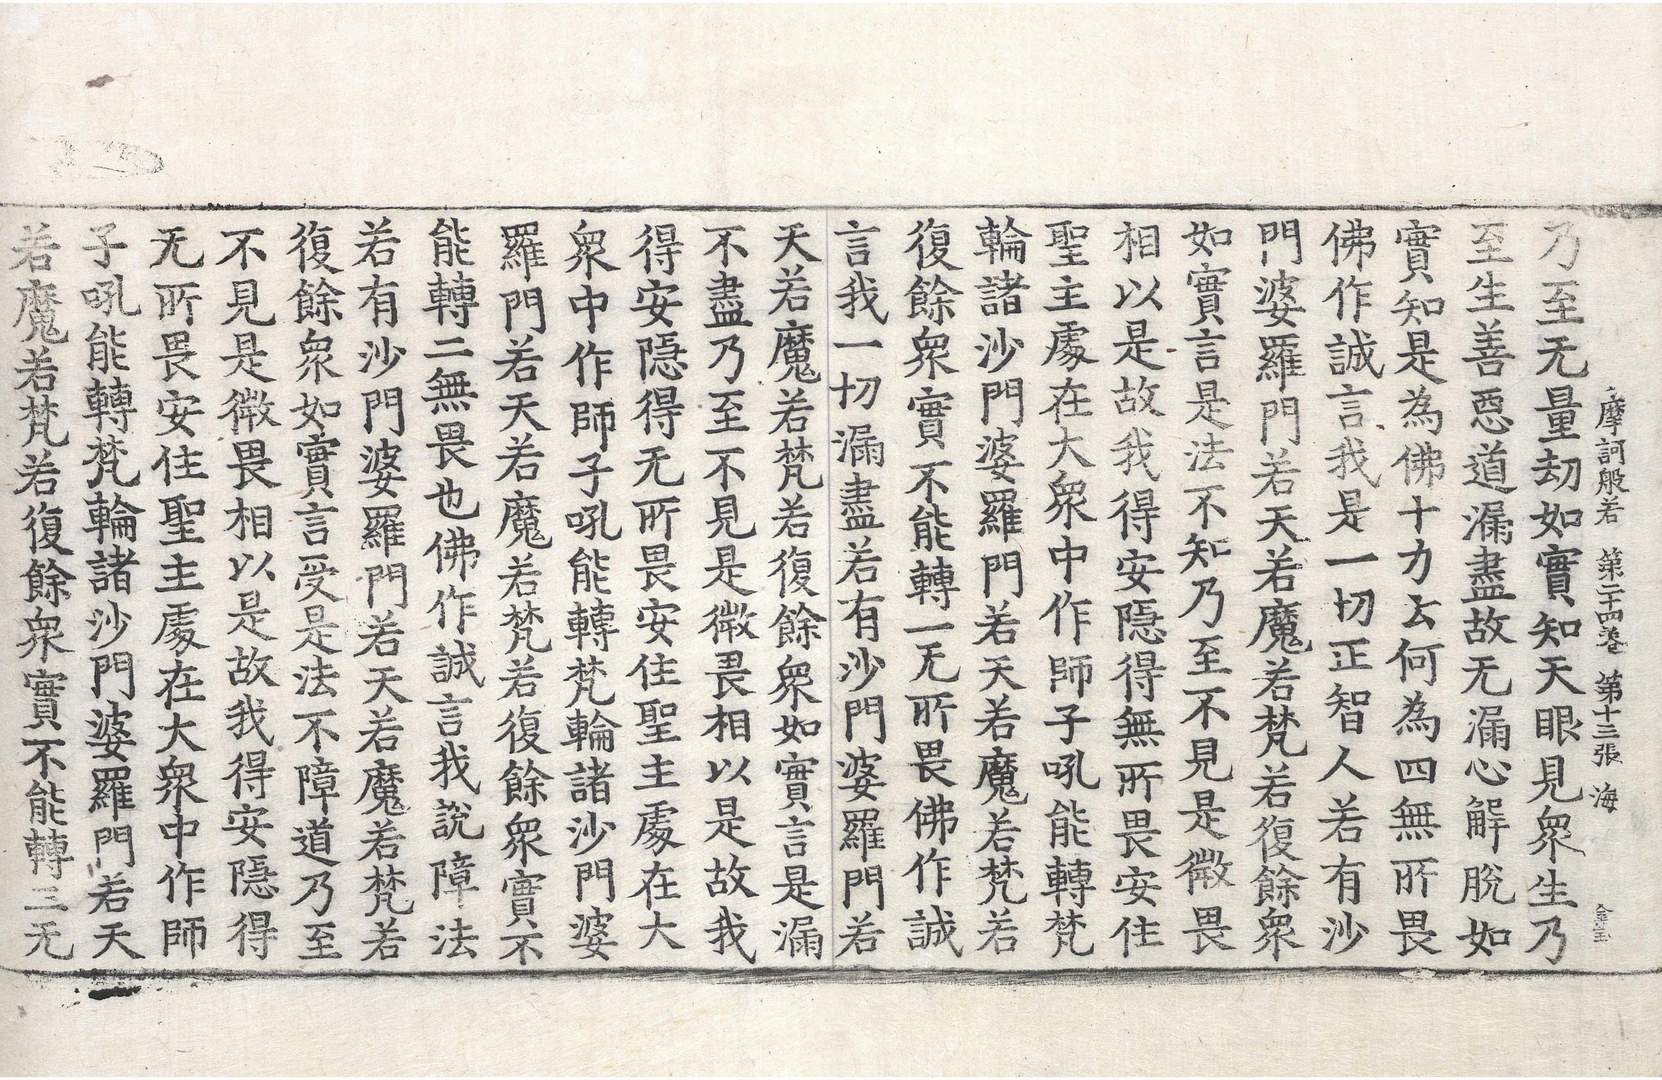 摩訶般若 第二十四卷 第十三張 海
乃至无量劫如實知天眼見衆生乃
至生善惡道漏盡故无漏心解脫如
實知是為佛十力云何為四無所畏
佛作誠言我是一切正智人若有沙
門婆羅門若天若魔若梵若復餘衆
如實言是法不知乃至不見是微畏
相以是故我得安隱得無所畏安住
聖主處在大衆中作師子吼能轉梵
輪諸沙門婆羅門若天若魔若梵若
復餘衆實不能轉一无所畏佛作誠
言我一切漏盡若有沙門婆羅門若
天若魔若梵若復餘衆如實言是漏
不盡乃至不見是微畏相以是故我
得安隱得无所畏安住聖主處在大
衆中作師子吼能轉梵輪諸沙門婆
羅門若天若魔若梵若復餘衆實不
能轉二無畏也佛作誠言我說障法
若有沙門婆羅門若天若魔若梵若
復餘衆如實言受是法不障道乃至
不見是微畏相以是故我得安隱得
无所畏安住聖主處在大衆中作師
子吼能轉梵輪諸沙門婆羅門若天
若魔若梵若復餘衆實不能轉三无